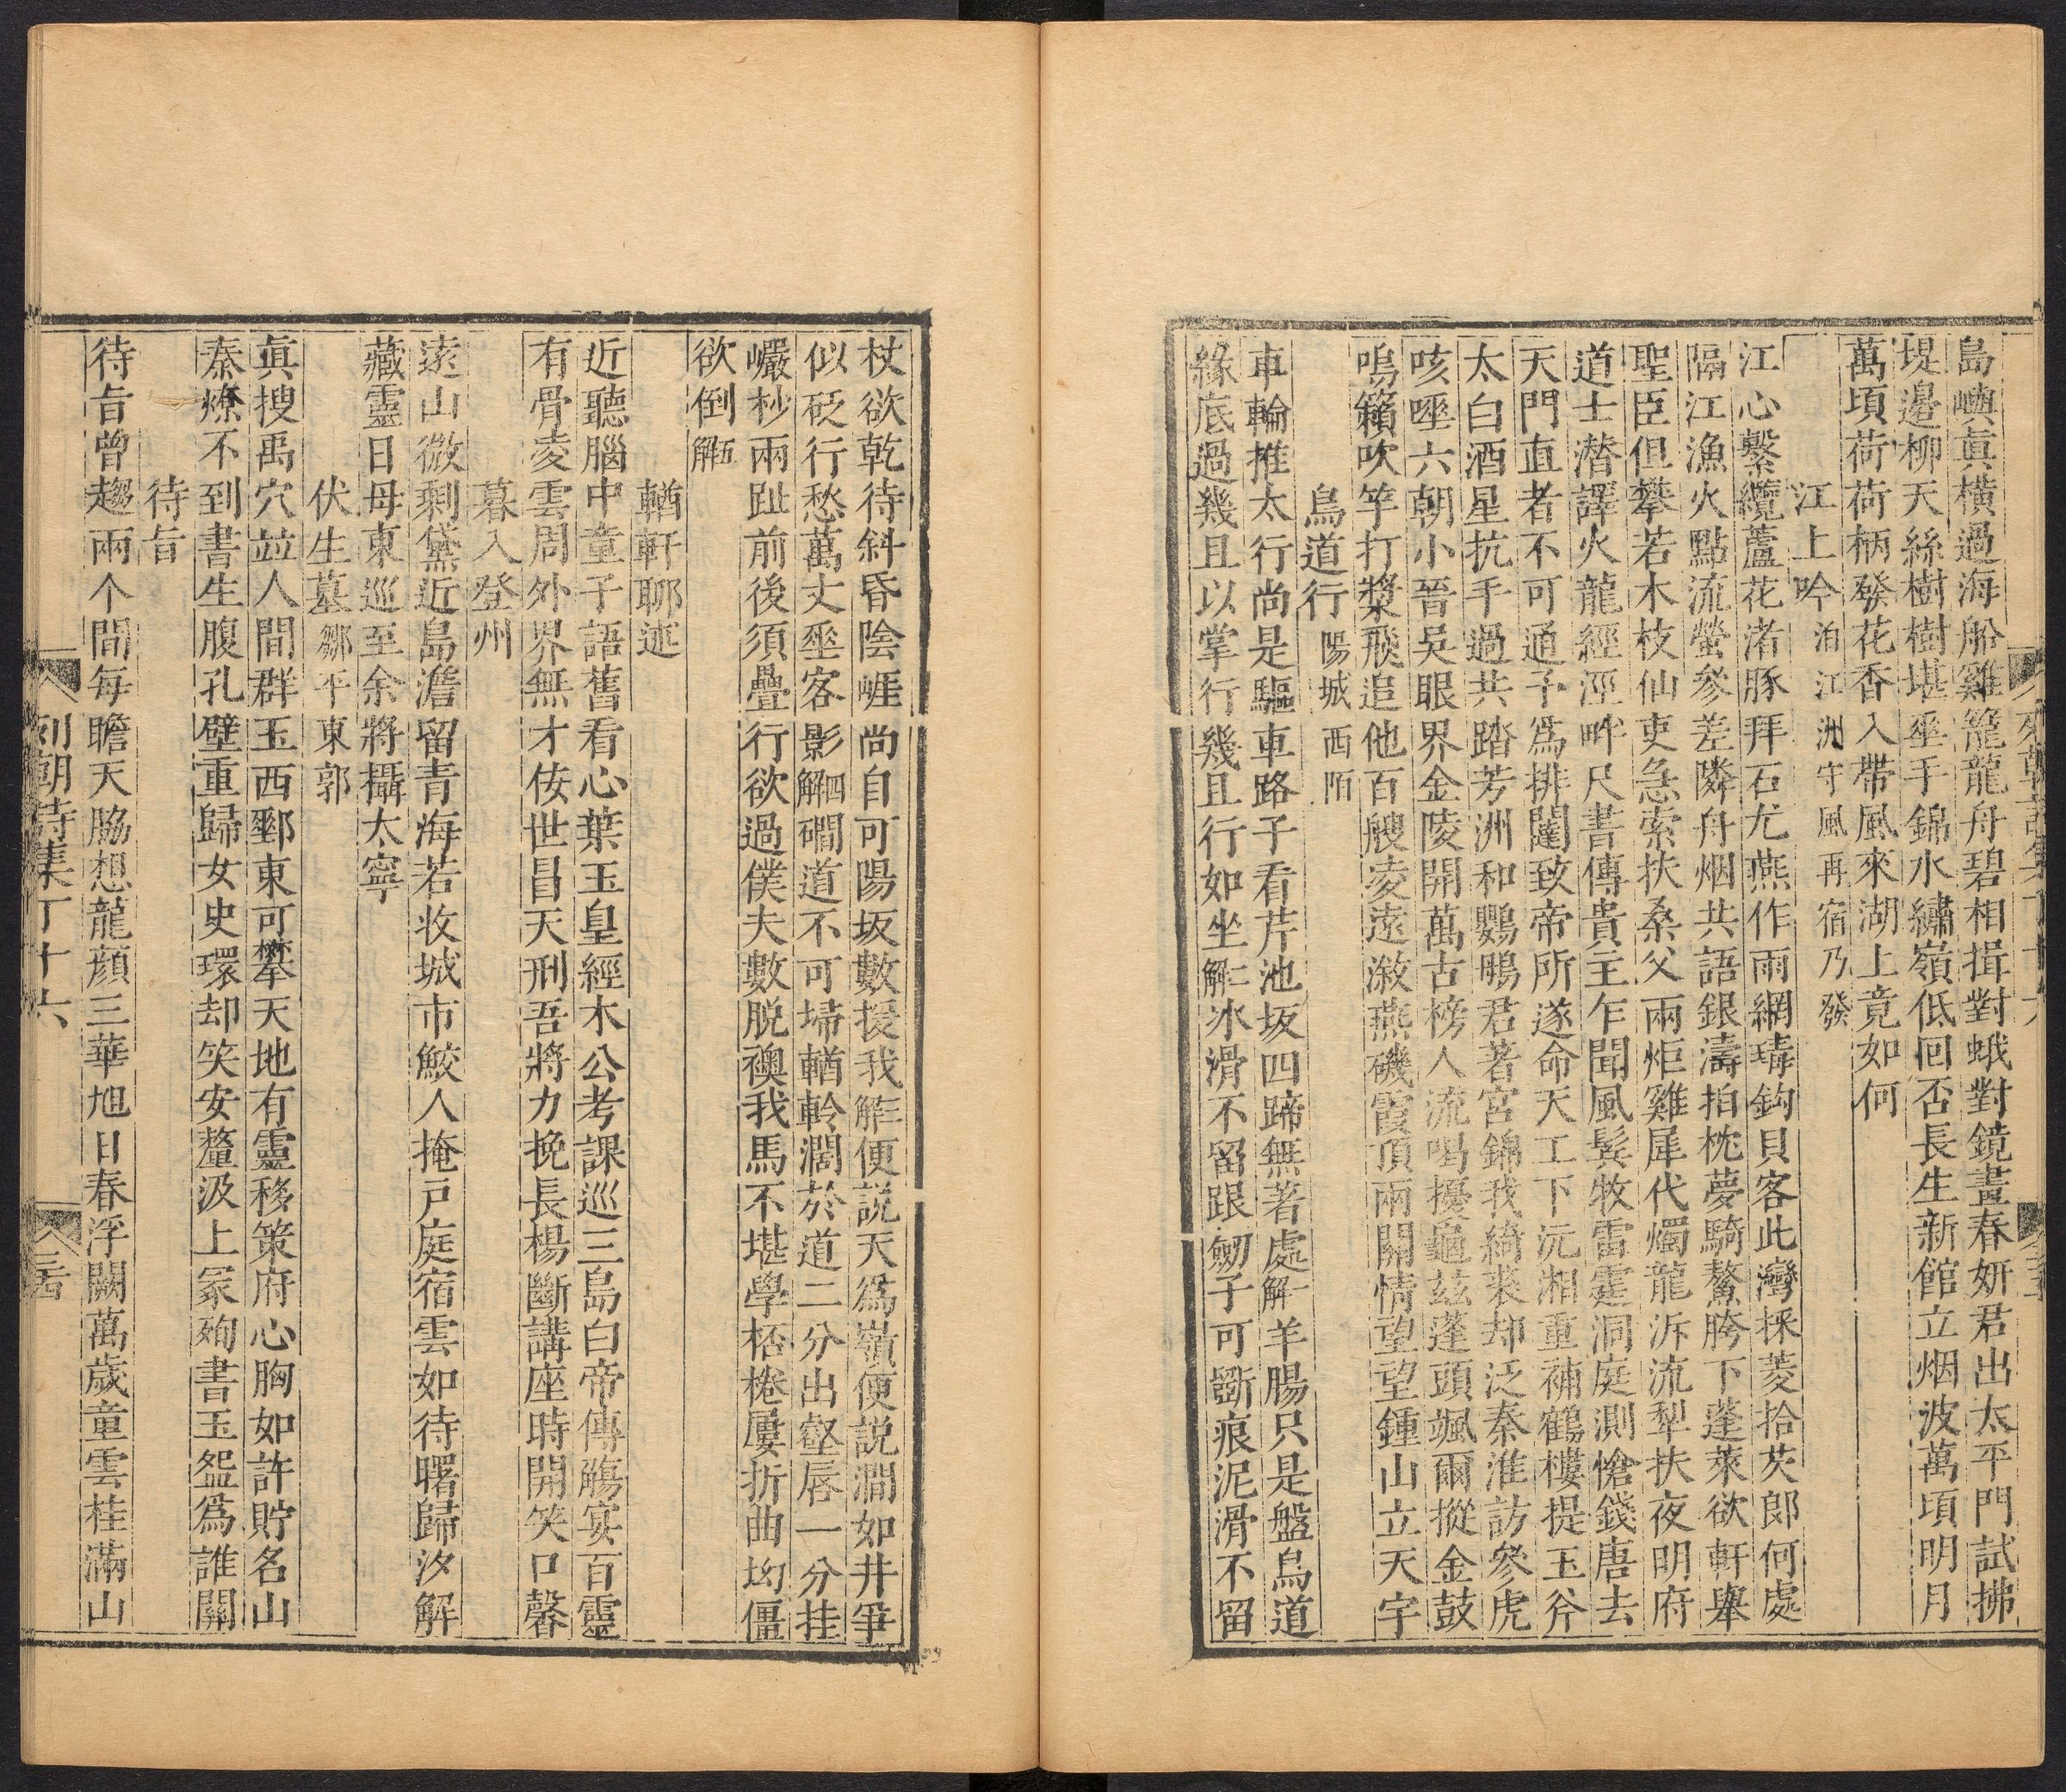 島嶼眞橫過海船雞籠龍舟碧相揖對蛾對鏡畫春妍君出太平門試拂
堤邊柳天絲樹樹堪垂手錦水繡嶺低回否長生新館立烟波萬頃明月
萬頃荷荷柄發花香入帶風來湖上竟如何
江上吟 泊江洲守風再宿乃發
江心繫纜蘆花渚豚拜石尤燕作雨網璹鈎貝客此灣採菱拾芡郎何處
隔江漁火點流螢參差隣舟烟共語銀濤拍枕夢騎鰲胯下蓬萊欲軒舉
聖臣但攀若木枝仙吏急索扶桑父兩炬雞犀代燭龍泝流犁扶夜明府
道士潛譯火龍經涇畔尺書傳貴主乍聞風鬟牧雷霆洞庭測愴錢唐去
天門直者不可通子爲排闥致帝所遂命天工下沅湘重補鶴樓提玉斧
太白酒星抗手過共踏芳洲和鸚鵡君著宮錦我綺裘却泛秦淮訪參虎
咳唾六朝小晉吳眼界金陵開萬古榜人流喝擾龜茲蓬頭颯爾摐金鼓
嗚籟吹竽打槳飛追他百艘凌遠漵燕磯霞頂兩關情望望鍾山立天宇
鳥道行 陽城西陌
車輪推太行尚是驅車路子看芹池坂四蹄無著處一解羊腸只是盤鳥道
緣底過幾且以掌行幾且行如坐二解冰滑不留跟劒子可斲痕泥滑不留
杖欲乾待斜昏陰崕尚自可陽坂數援我三解便説天爲嶺便説澗如井爭
似砭行愁萬丈垂客影四解礀道不可埽輶軨濶於道二分出壑唇一分挂
巘杪兩趾前後須疊行欲過僕夫數脱襖我馬不堪學桮棬屢折曲均僵
欲倒五解
輶軒聊述
近聽腦中童子語舊看心葉玉皇經木公考課巡三島白帝傳觴宴百靈
有骨凌雲周外界無才侫世昌天刑吾將力挽長楊斷講座時開笑口馨
暮入登州
遠山微剩黛近島澹留青海若收城市鮫人掩戸庭宿雲如待曙歸汐解
藏靈日毋東巡至余將攝太寧
伏生墓 鄒平東郭
眞搜禹穴竝人間群玉西鄄東可攀天地有靈移策府心胸如許貯名山
秦燎不到書生腹孔壁重歸女史環却笑安釐汲上冢殉書玉盌爲誰關
待旨
待旨曾趨兩个間每瞻天脇想龍顔三華旭日春浮闕萬歲童雲桂滿山
列朝詩集丁十六